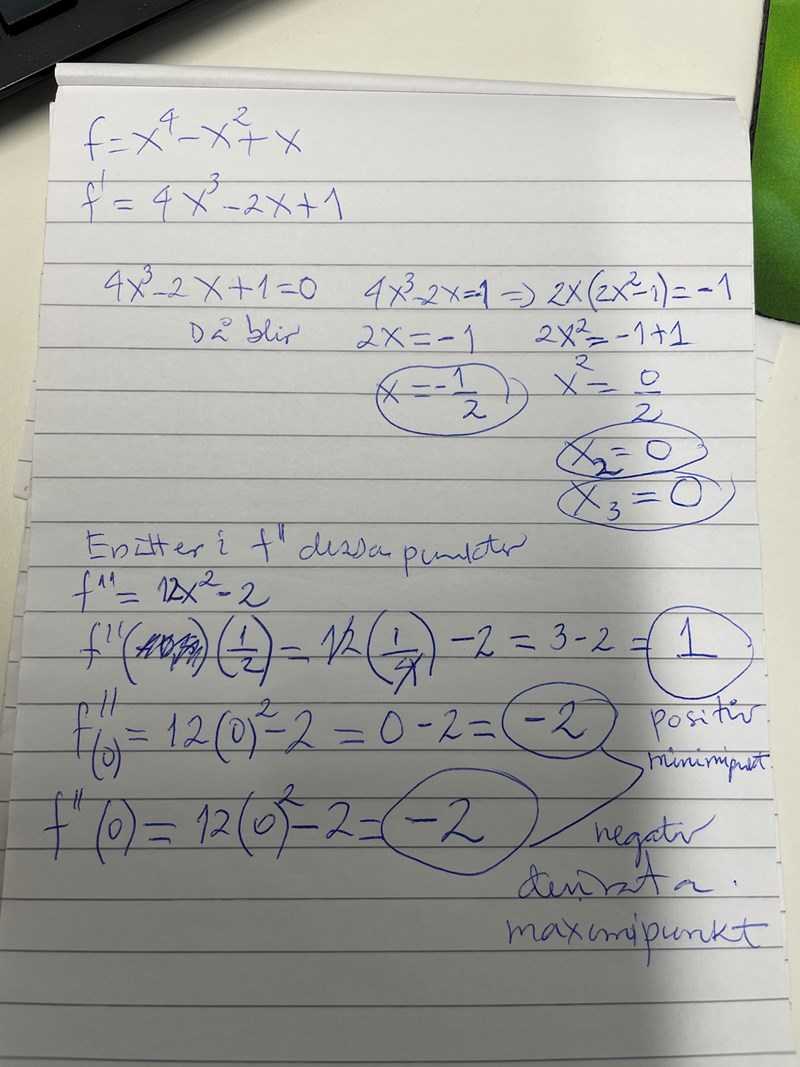 f=x⁴-x²+x
f' = 4x³-2x+1
4x³-2x+1=0 4x³-2x=-1 => 2x(2x²-1)=-1
Då blir 2x=-1 2x²=-1+1
x=-1/2 x²=0/2
x₂=0
x₃=0
i f'' dessa punkter
f''=12x²-2
f''(1/2)=12(1/4)-2=3-2=1
f''(0)=12(0)²-2=0-2=-2 positiv
minimipunkt.
f''(0)=12(0)²-2=-2 negativ
derivata.
maximipunkt